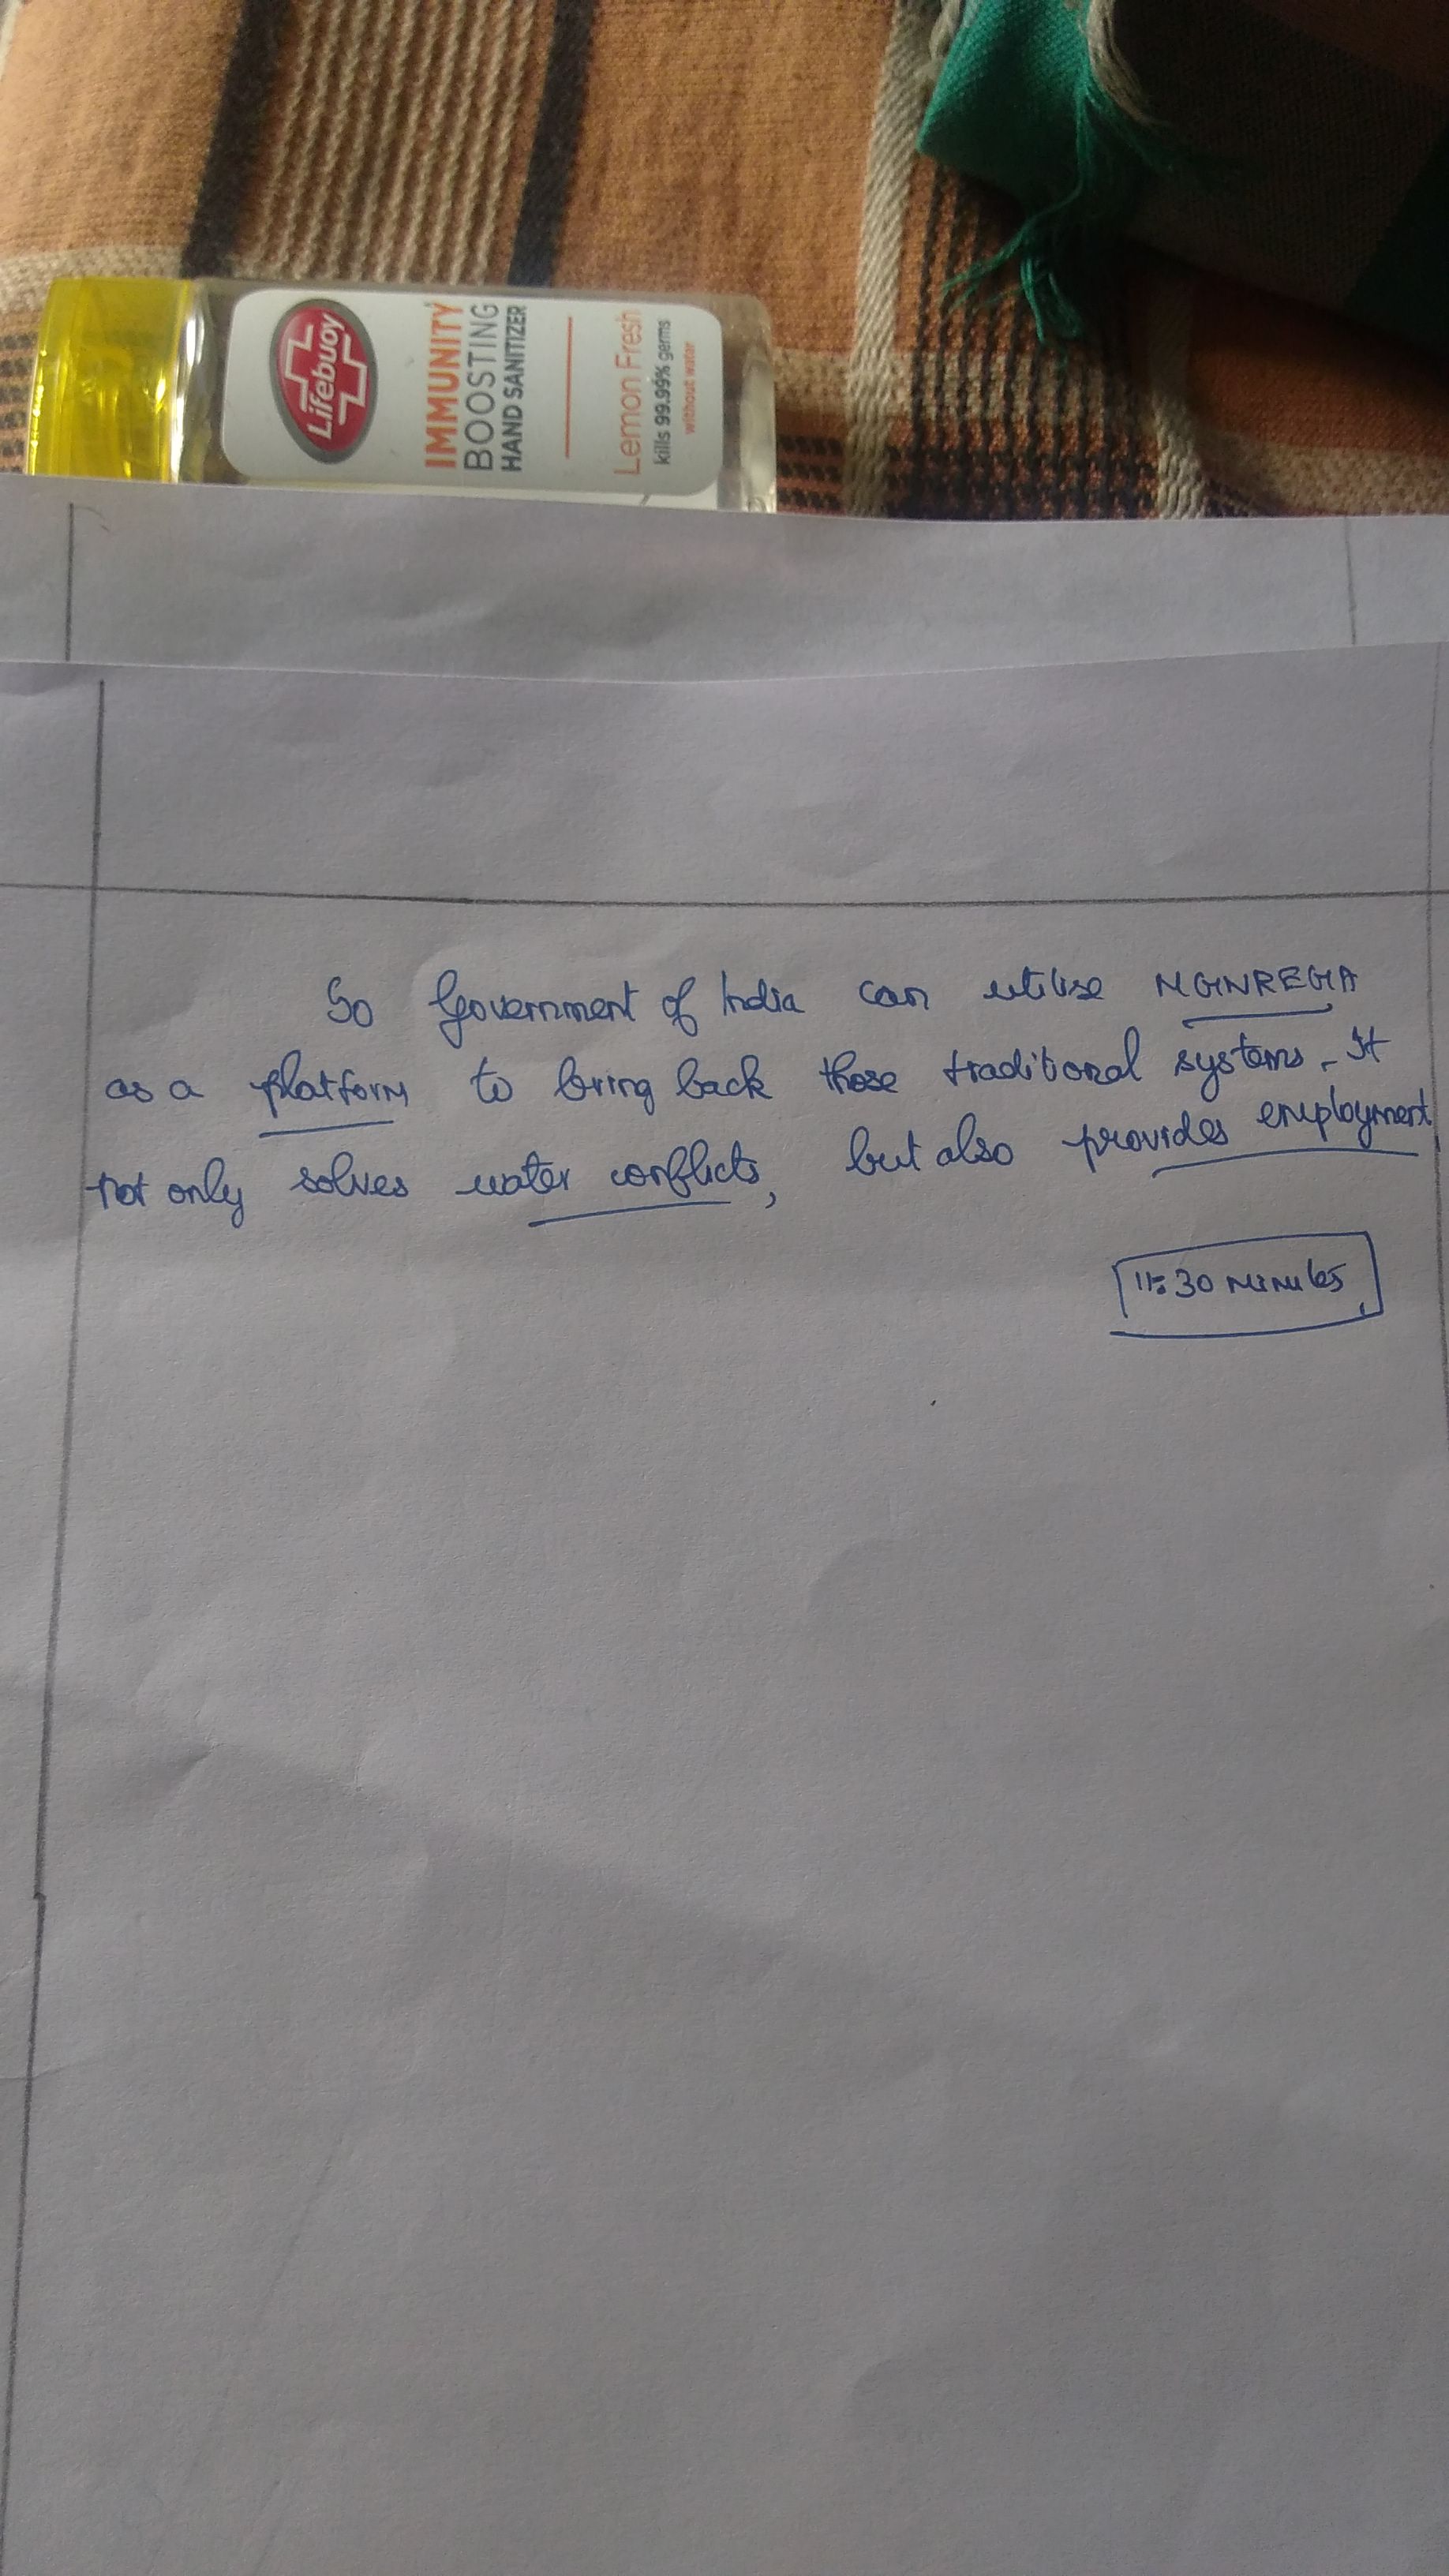 Lifebuoy
IMMUNITY
BOOSTING
HAND SANITIZER
Lemon Fresh
kills 99.99% germs
without water
So Government of India can utilise MGNREGA
as a platform to bring back those traditional systems. It
not only solves water conflicts, but also provides employment
11:30 minutes